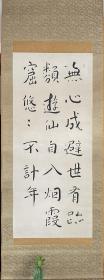 無心成避世有跡
類遊仙自入烟霞
窟悠〻不計年